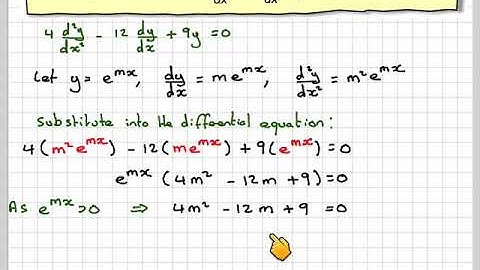 4 d²y/dx² - 12 dy/dx + 9y = 0
Let y = e^mx, dy/dx = me^mx, d²y/dx² = m²e^mx
Substitute into the differential equation:
4(m²e^mx) - 12(me^mx) + 9(e^mx) = 0
e^mx (4m² - 12m + 9) = 0
As e^mx > 0 ⇒ 4m² - 12m + 9 = 0